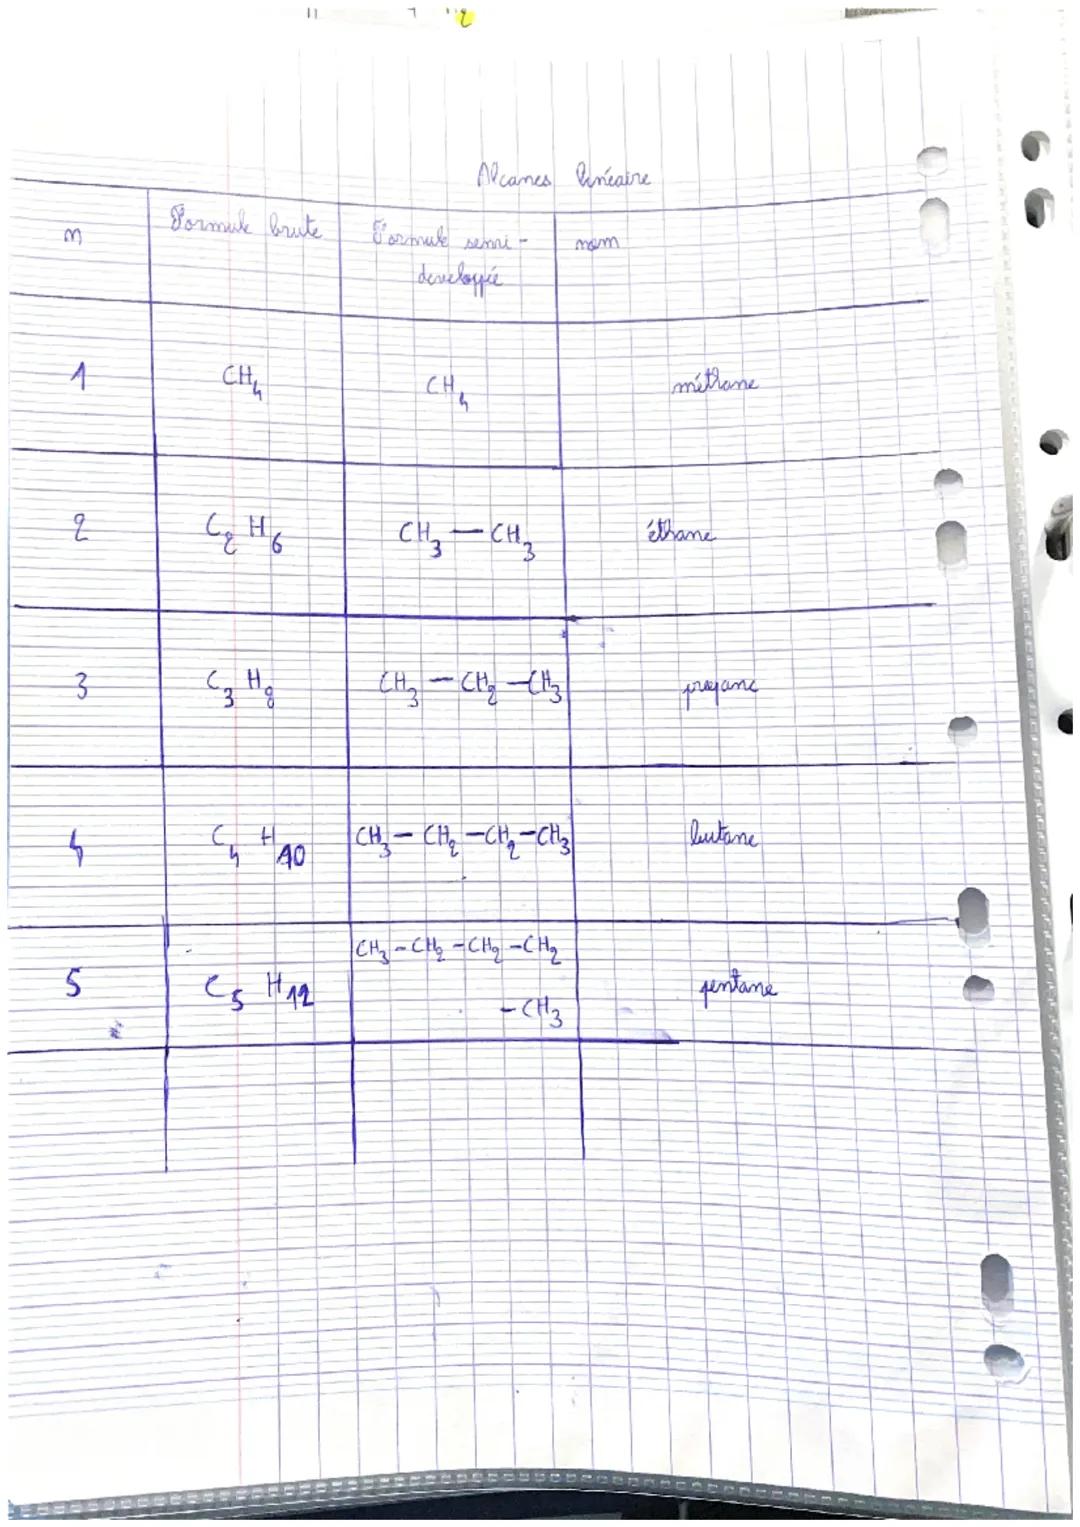 2
Alcanes linéaire
n Formule brute Formule semi-
developpée nom
1 CH₄ CH₄ méthane
2 C₂ H₆ CH₃ — CH₃ éthane
3 C₃ H₈ CH₃ — CH₂ — CH₃ propane
4 C₄ H₁₀ CH₃ — CH₂ — CH₂ — CH₃ butane
5 C₅ H₁₂ CH₃ - CH₂ - CH₂ - CH₂
- CH₃ pentane